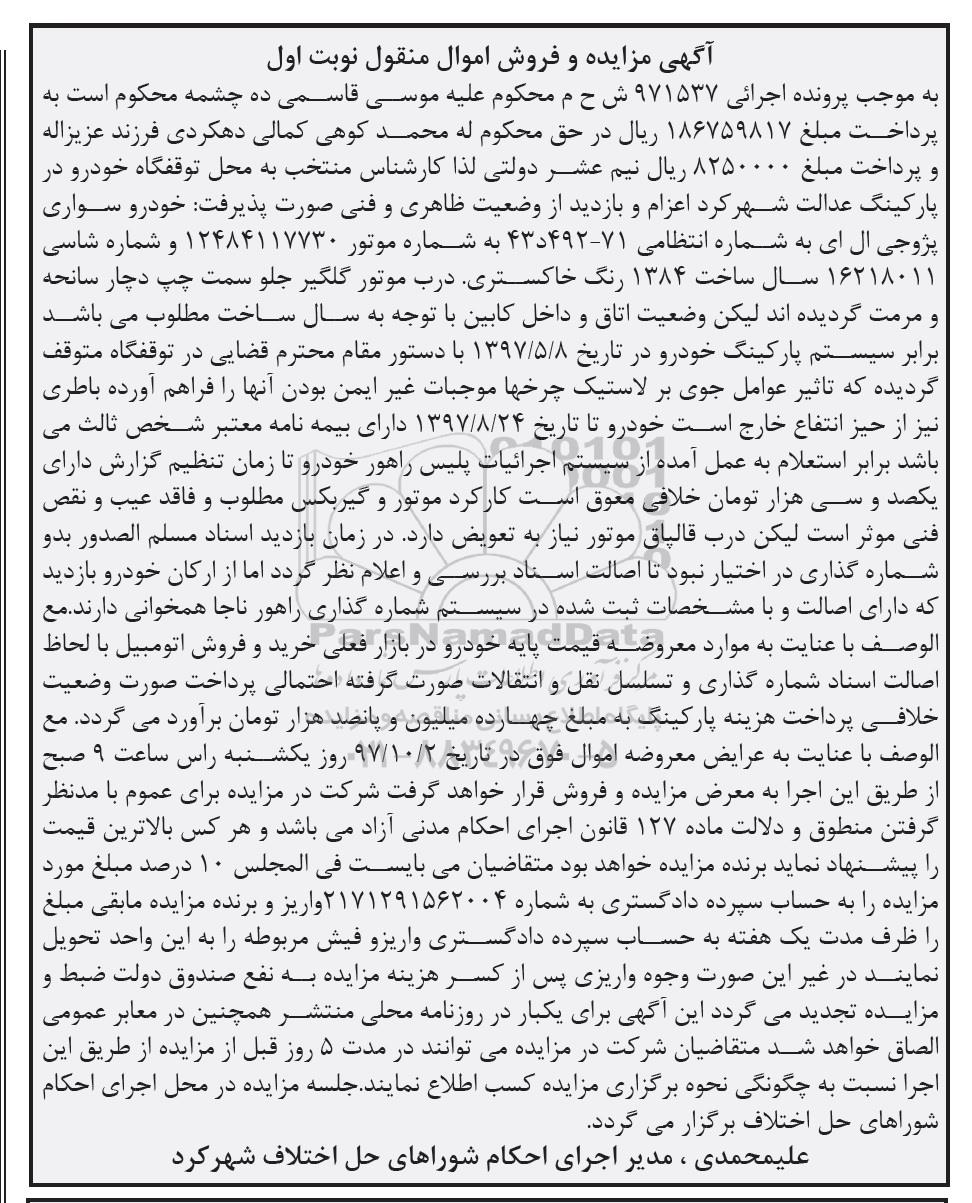 آگهی مزایده و فروش اموال منقول نوبت اول
به موجب پرونده اجرائی ۹۷۱۵۳۷ ش ح م محکوم علیه موسی قاسمی ده چشمه محکوم است به
پرداخت مبلغ ۱۸۶۷۵۹۸۱۷ ریال در حق محکوم له محمد کوهی کمالی دهکردی فرزند عزیزاله
و پرداخت مبلغ ۸۲۵۰۰۰۰ ریال نیم عشر دولتی لذا کارشناس منتخب به محل توقفگاه خودرو در
پارکینگ عدالت شهرکرد اعزام و بازدید از وضعیت ظاهری و فنی صورت پذیرفت: خودرو سواری
پژوجی ال ای به شماره انتظامی ۷۱-۴۹۲د۴۳ به شماره موتور ۱۲۴۸۴۱۱۷۷۳۰ و شماره شاسی
۱۶۲۱۸۰۱۱ سال ساخت ۱۳۸۴ رنگ خاکستری. درب موتور گلگیر جلو سمت چپ دچار سانحه
و مرمت گردیده اند لیکن وضعیت اتاق و داخل کابین با توجه به سال ساخت مطلوب می باشد
برابر سیستم پارکینگ خودرو در تاریخ ۱۳۹۷/۵/۸ با دستور مقام محترم قضایی در توقفگاه متوقف
گردیده که تاثیر عوامل جوی بر لاستیک چرخها موجبات غیر ایمن بودن آنها را فراهم آورده باطری
نیز از حیز انتفاع خارج است خودرو تا تاریخ ۱۳۹۷/۸/۲۴ دارای بیمه نامه معتبر شخص ثالث می
باشد برابر استعلام به عمل آمده از سیستم اجرائیات پلیس راهور خودرو تا زمان تنظیم گزارش دارای
یکصد و سی هزار تومان خلافی معوق است کارکرد موتور و گیربکس مطلوب و فاقد عیب و نقص
فنی موثر است لیکن درب قالپاق موتور نیاز به تعویض دارد. در زمان بازدید اسناد مسلم الصدور بدو
شماره گذاری در اختیار نبود تا اصالت اسناد بررسی و اعلام نظر گردد اما از ارکان خودرو بازدید
که دارای اصالت و با مشخصات ثبت شده در سیستم شماره گذاری راهور ناجا همخوانی دارند.مع
الوصف با عنایت به موارد معروضه قیمت پایه خودرو در بازار فعلی خرید و فروش اتومبیل با لحاظ
اصالت اسناد شماره گذاری و تسلسل نقل و انتقالات صورت گرفته احتمالی پرداخت صورت وضعیت
خلافی پرداخت هزینه پارکینگ به مبلغ چهارده میلیون و پانصد هزار تومان برآورد می گردد. مع
الوصف با عنایت به عرایض معروضه اموال فوق در تاریخ ۹۷/۱۰/۲ روز یکشنبه راس ساعت ۹ صبح
از طریق این اجرا به معرض مزایده و فروش قرار خواهد گرفت شرکت در مزایده برای عموم با مدنظر
گرفتن منطوق و دلالت ماده ۱۲۷ قانون اجرای احکام مدنی آزاد می باشد و هر کس بالاترین قیمت
را پیشنهاد نماید برنده مزایده خواهد بود متقاضیان می بایست فی المجلس ۱۰ درصد مبلغ مورد
مزایده را به حساب سپرده دادگستری به شماره ۲۱۷۱۲۹۱۵۶۲۰۰۴واریز و برنده مزایده مابقی مبلغ
را ظرف مدت یک هفته به حساب سپرده دادگستری واریزو فیش مربوطه را به این واحد تحویل
نمایند در غیر این صورت وجوه واریزی پس از کسر هزینه مزایده به نفع صندوق دولت ضبط و
مزایده تجدید می گردد این آگهی برای یکبار در روزنامه محلی منتشر همچنین در معابر عمومی
الصاق خواهد شد متقاضیان شرکت در مزایده می توانند در مدت ۵ روز قبل از مزایده از طریق این
اجرا نسبت به چگونگی نحوه برگزاری مزایده کسب اطلاع نمایند.جلسه مزایده در محل اجرای احکام
شوراهای حل اختلاف برگزار می گردد.
علیمحمدی ، مدیر اجرای احکام شوراهای حل اختلاف شهرکرد
ParsNamadData
پایگاه اطلاع رسانی مناقصه و مزایده
۰۲۱-۸۸۳۴۹۶۷۰-۵